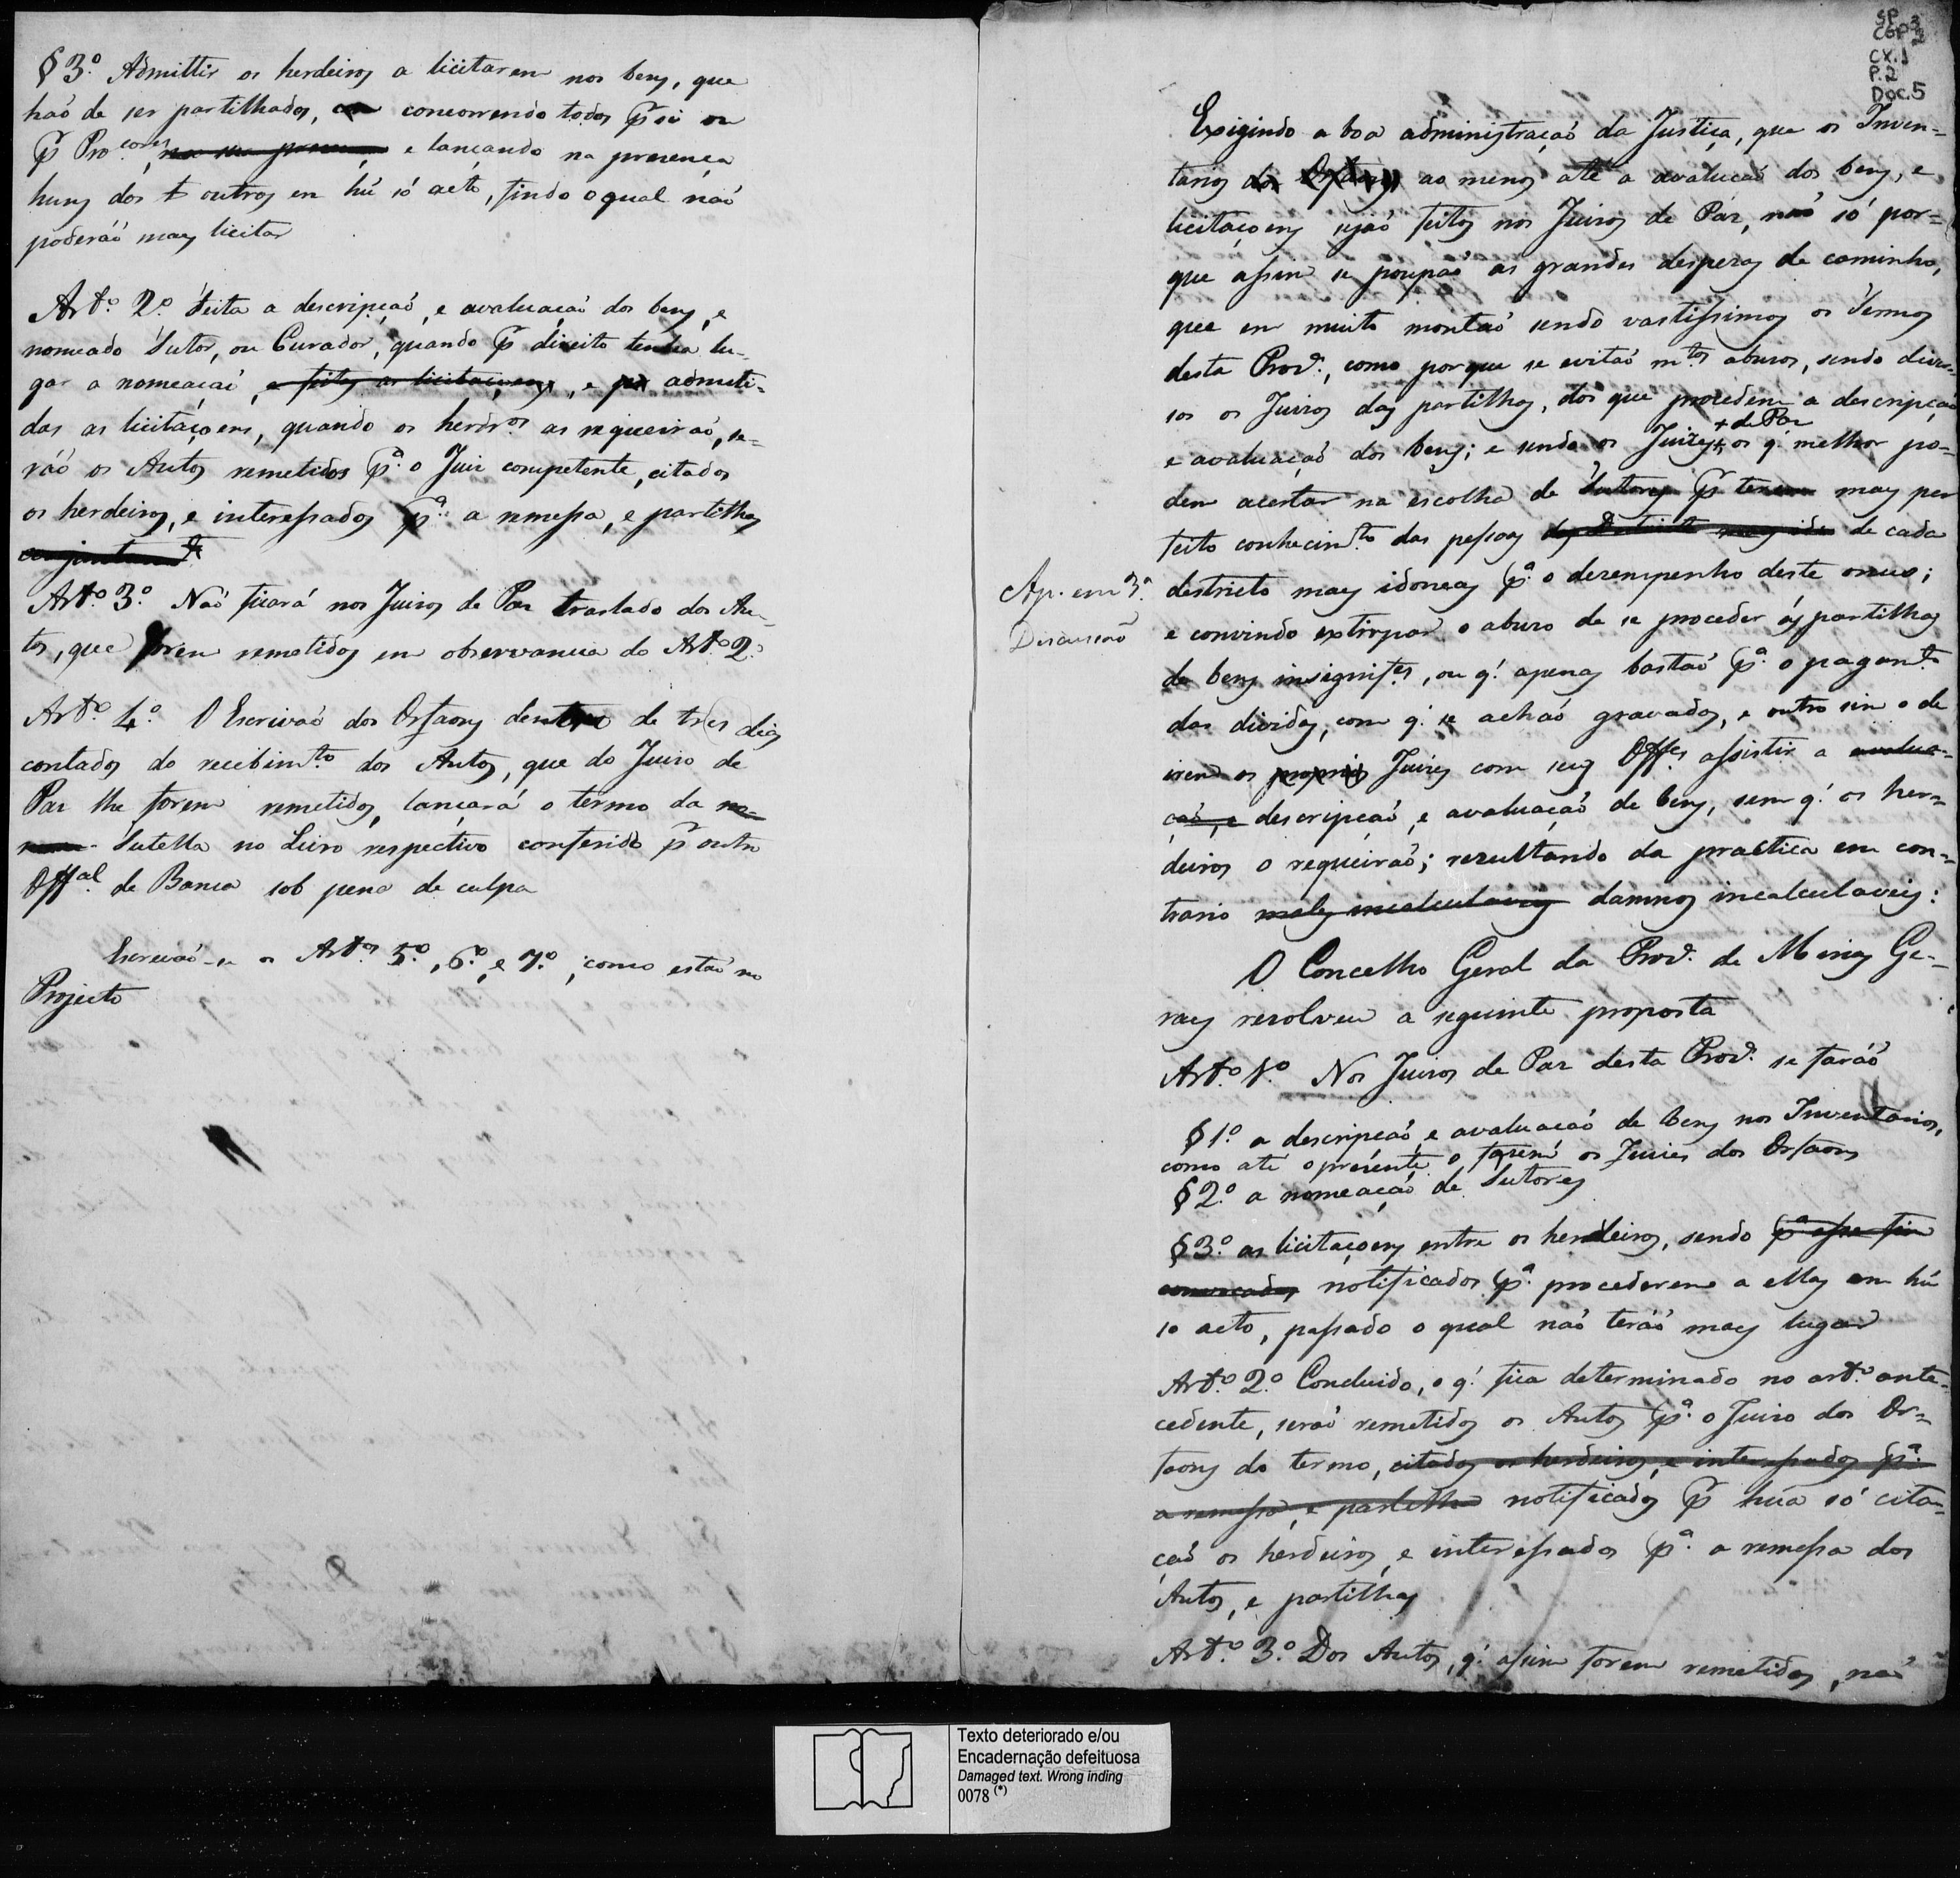 § 3.º Admittir os herdeiros a licitarem nos bens, que
haõ de ser partilhados, concorrendo todos p̃ si ou
p̃ Pro.cores e lançando na presença
huns dos outros em hũ só acto, findo o qual naõ
poderáõ mais licitar
Art.º 2.º Feita a descripçaõ, e avaluaçaõ dos bens, e
nomeado Tutor, ou Curador, quando p̃ direito tenha lu-
gar a nomeaçaõ, e feitas as licitaçoens, e admeti-
das as licitaçoens, quando os herdr.os as requeiraõ, se-
ráõ os Autos remetidos p.ª o Juiz competente, citados
os herdeiros, e interessados p.ª a remessa, e partilhas
Art.º 3.º Naõ ficará nos Juizos de Paz traslado dos Au-
tos, que forem remetidos em observancia do Art.º 2.º
Art.º 4.º O Escrivaõ dos Orfaons dentro de tres dias
contados do recebim.to dos Autos, que do Juizo de
Paz lhe forem remetidos, lançará o termo da
Tutella no Livro respectivo conferido p̃ outro
Off.al de Banca sob pena de culpa
Escrevaõ-se os Art.os 5.º, 6.º, e 7.º, como estaõ no
Projecto
SP 3
CGP 2
CX. 1
P. 2
Doc. 5
Exigindo a boa administraçaõ da Justiça, que os Inven-
tarios dos Orfaons ao menos até a avaluçaõ dos bens, e
licitaçoens sejaõ feitos nos Juizos de Paz, naõ só por-
que assim se poupaõ as grandes despezas de caminho,
que em muito montaõ sendo vastissimos os Termos
desta Prov.ª, como porque se evitaõ m.tos abusos, sendo diver-
sos os Juizos das partilhas, dos que procedem a descripçaõ
+ de Paz
e avaluaçaõ dos bens; e sendo os Juizes + os q.' melhor po-
dem acertar na escolha de Tutores p̃ terem mais per
feito conhecim.to das pessoas de cada
Ap. em 3.ª
Discussaõ
destricto mais idoneas p.ª o desempenho deste onus;
e convindo extirpar o abuso de se proceder ás partilhas
de bens insignif.es, ou q.' apenas bastaõ p.ª o pagam.to
das dividas, com q.' se achaõ gravados, e outro sim o de
irem os proprios Juizes com seus Off.es assistir a avalua-
çaõ, e descripçaõ, e avaluaçaõ de bens, sem q.' os her-
deiros o requeiraõ; rezultando da practica em con-
trario males incalculaveis damnos incalculaveis:
O Concelho Geral da Prov.ª de Minas Ge-
raes resolveu a seguinte proposta
Art.º 1.º Nos Juizos de Paz desta Prov.ª se faráõ
§ 1.º a descripçaõ, e avaluaçaõ de bens nos Inventarios,
como até o prezente o fazem os Juizes dos Orfaons
§ 2.º a nomeaçaõ de Tutores
§ 3.º as licitaçoens entre os herdeiros, sendo p.ª esse fim
convocados notificados p.ª procederem a ellas em hũ
so acto, passado o qual naõ teráõ mais lugar
Art.º 2.º Concluido, o q.' fica determinado no art.º ante-
cedente, seraõ remetidos os Autos p.ª o Juizo dos Or-
faons do termo, citados os herdeiros, e interessados p.ª
a remessa, e partilha notificados p̃ hũa só cita-
çaõ os herdeiros, e interessados p.ª a remessa dos
Autos, e partilhas
Art.º 3.º Dos Autos, q.' assim forem remetidos, naõ
Texto deteriorado e/ou
Encadernação defeituosa
Damaged text. Wrong inding
0078 (*)